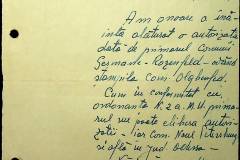 Am onoare a îna-
inta alăturat o autorizație
dată de primarul comunei
Germane - Rosenfeld - având
ștampila com. Olgenfeld.
Cum în conformitate cu
ordonanța N. 2 a. M. U. prima-
rul nu poate elibera autori-
zații - iar com. Noul
se află în jud. Odesa -